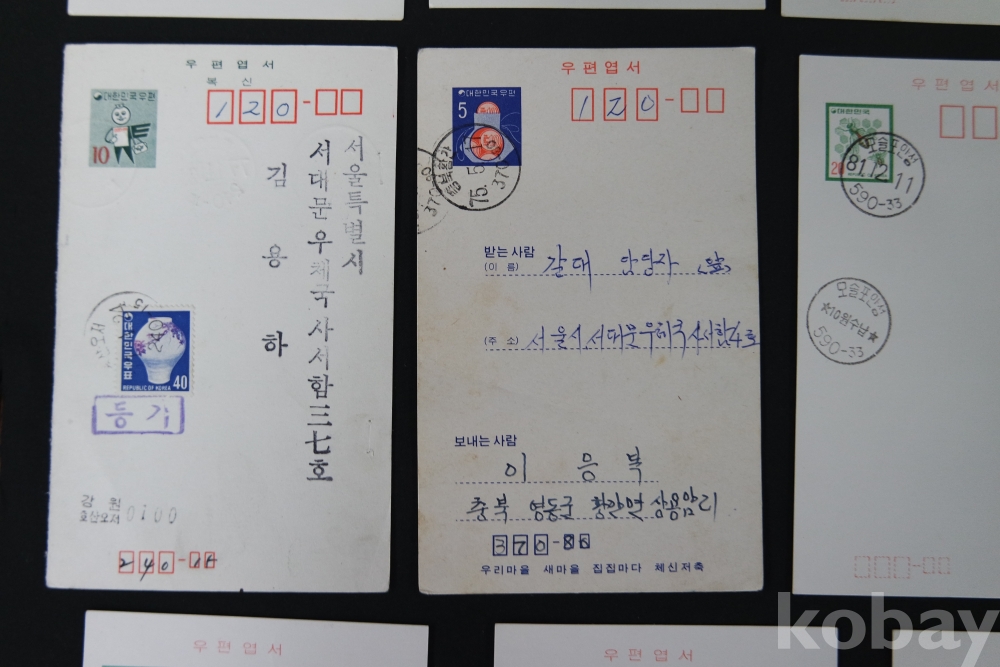 우편엽서
복신
대한민국우편
10
120-
서울특별시
서대문우체국사서함三七호
김용하
대한민국우표
REPUBLIC OF KOREA
40
등기
강원
0100
240-
우편엽서
대한민국우편
5
120-
75. 5.
370
받는 사람
(이 름)
갈대
(주 소)
서울시 서대문우체국 사서함 4호
보내는 사람
이 응 복
충북 영동군 황간면 상용암리
370-86
우리마을 새마을 집집마다 체신저축
우편엽서
대한민국
20
모슬포안성
81.12.11
590-33
모슬포안성
★10월수납★
590-33
우편엽서
우편엽서
kobay